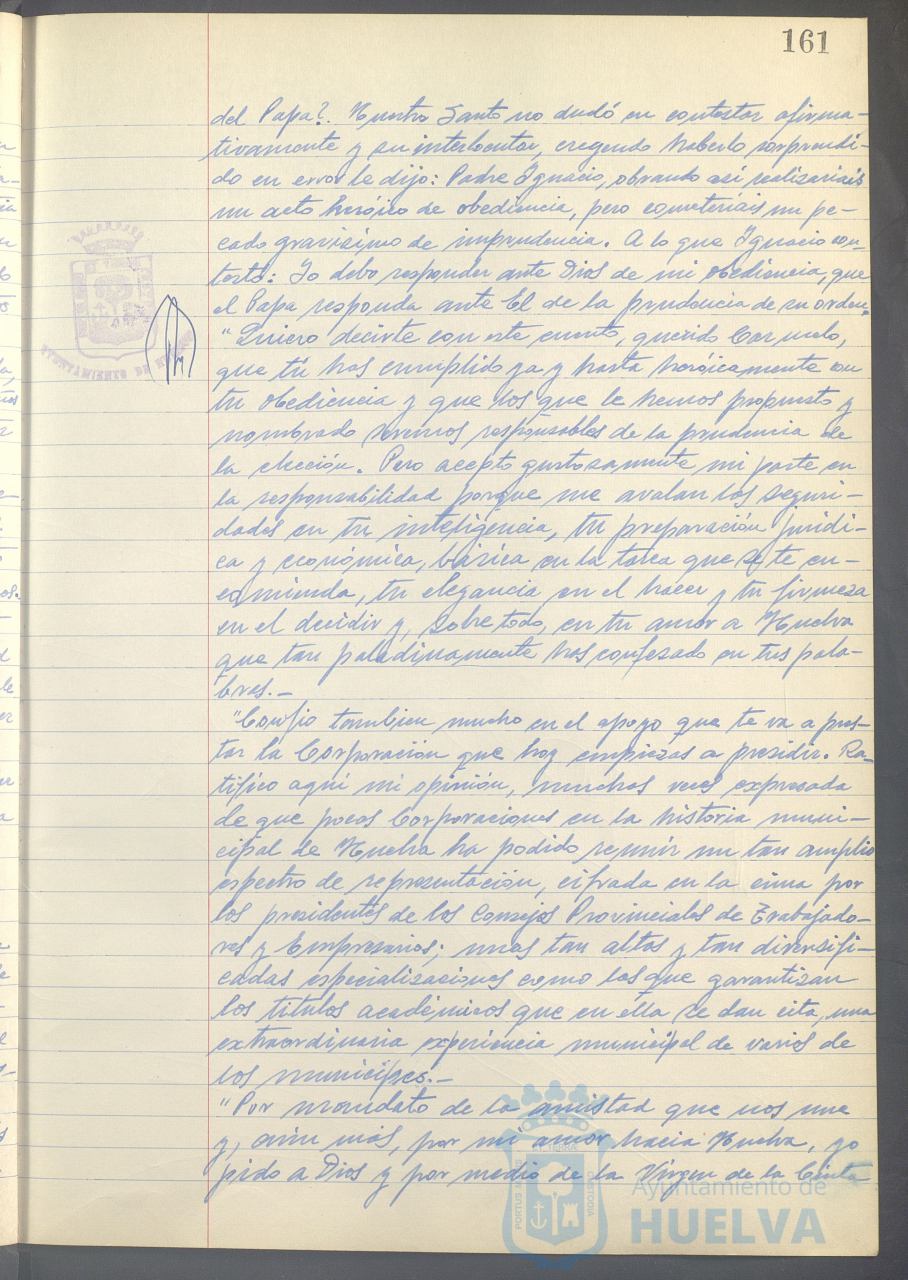 161
del Papa?. Nuestro Santo no dudó en contestar afirma-
tivamente y su interlocutor, creyendo haberlo sorprendi-
do en error le dijo: Padre Ignacio, obrando así realizariais
un acto heróico de obediencia, pero cometeríais un pe-
cado gravísimo de imprudencia. A lo que Ignacio con-
testó: Yo debo responder ante Dios de mi obediencia, que
el Papa responda ante El de la prudencia de su orden.
"Quiero decirte con este cuento, querido Carmelo,
que tú has cumplido ya y hasta heróicamente con
tu obediencia y que los que te hemos propuesto y
nombrado seremos responsables de la prudencia de
la elección. Pero acepto gustosamente mi parte en
la responsabilidad porque me avalan los seguri-
dades en tu inteligencia, tu preparación jurídi-
ca y económica, básica en la tarea que se te en-
comienda, tu elegancia en el hacer y tu firmeza
en el decidir y, sobre todo, en tu amor a Huelva
que tan paladinamente has confesado en tus pala-
bras.-
"Confío tambien mucho en el apoyo que te va a pres-
tar la Corporación que hoy empiezas a presidir. Ra-
tifico aquí mi opinión, muchas veces expresada
de que pocas Corporaciones en la historia muni-
cipal de Huelva ha podido reunir un tan amplio
espectro de representación, cifrada en la cima por
los presidentes de los Consejos Provinciales de Trabajado-
res y Empresarios; unas tan altas y tan diversifi-
cadas especializaciones como las que garantizan
los títulos académicos que en ella se dan cita, una
extraordinaria experiencia municipal de varios de
los munícipes.-
"Por mandato de la amistad que nos une
y, aún más, por mi amor hacia Huelva, yo
pido a Dios y por medio de la Virgen de la Cinta
AYUNTAMIENTO DE HUELVA
PORTUS MARIS ET TERRAE CUSTODIA
Ayuntamiento de
HUELVA